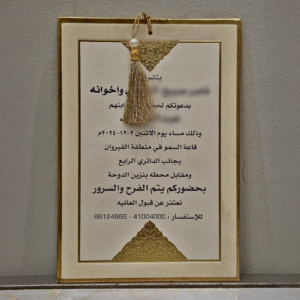 يتشرف
واخوانه
بدعوتكم
وذلك مساء يوم الاثنين ٢-١٢-٢٠٢٤م
قاعة السمو في منطقة القيروان
بجانب الدائري الرابع
ومقابل محطه بنزين الدوحة
بحضوركم يتم الفرح والسرور
نعتذر عن قبول العانيه
للإستفسار : 41004000 - 66124666